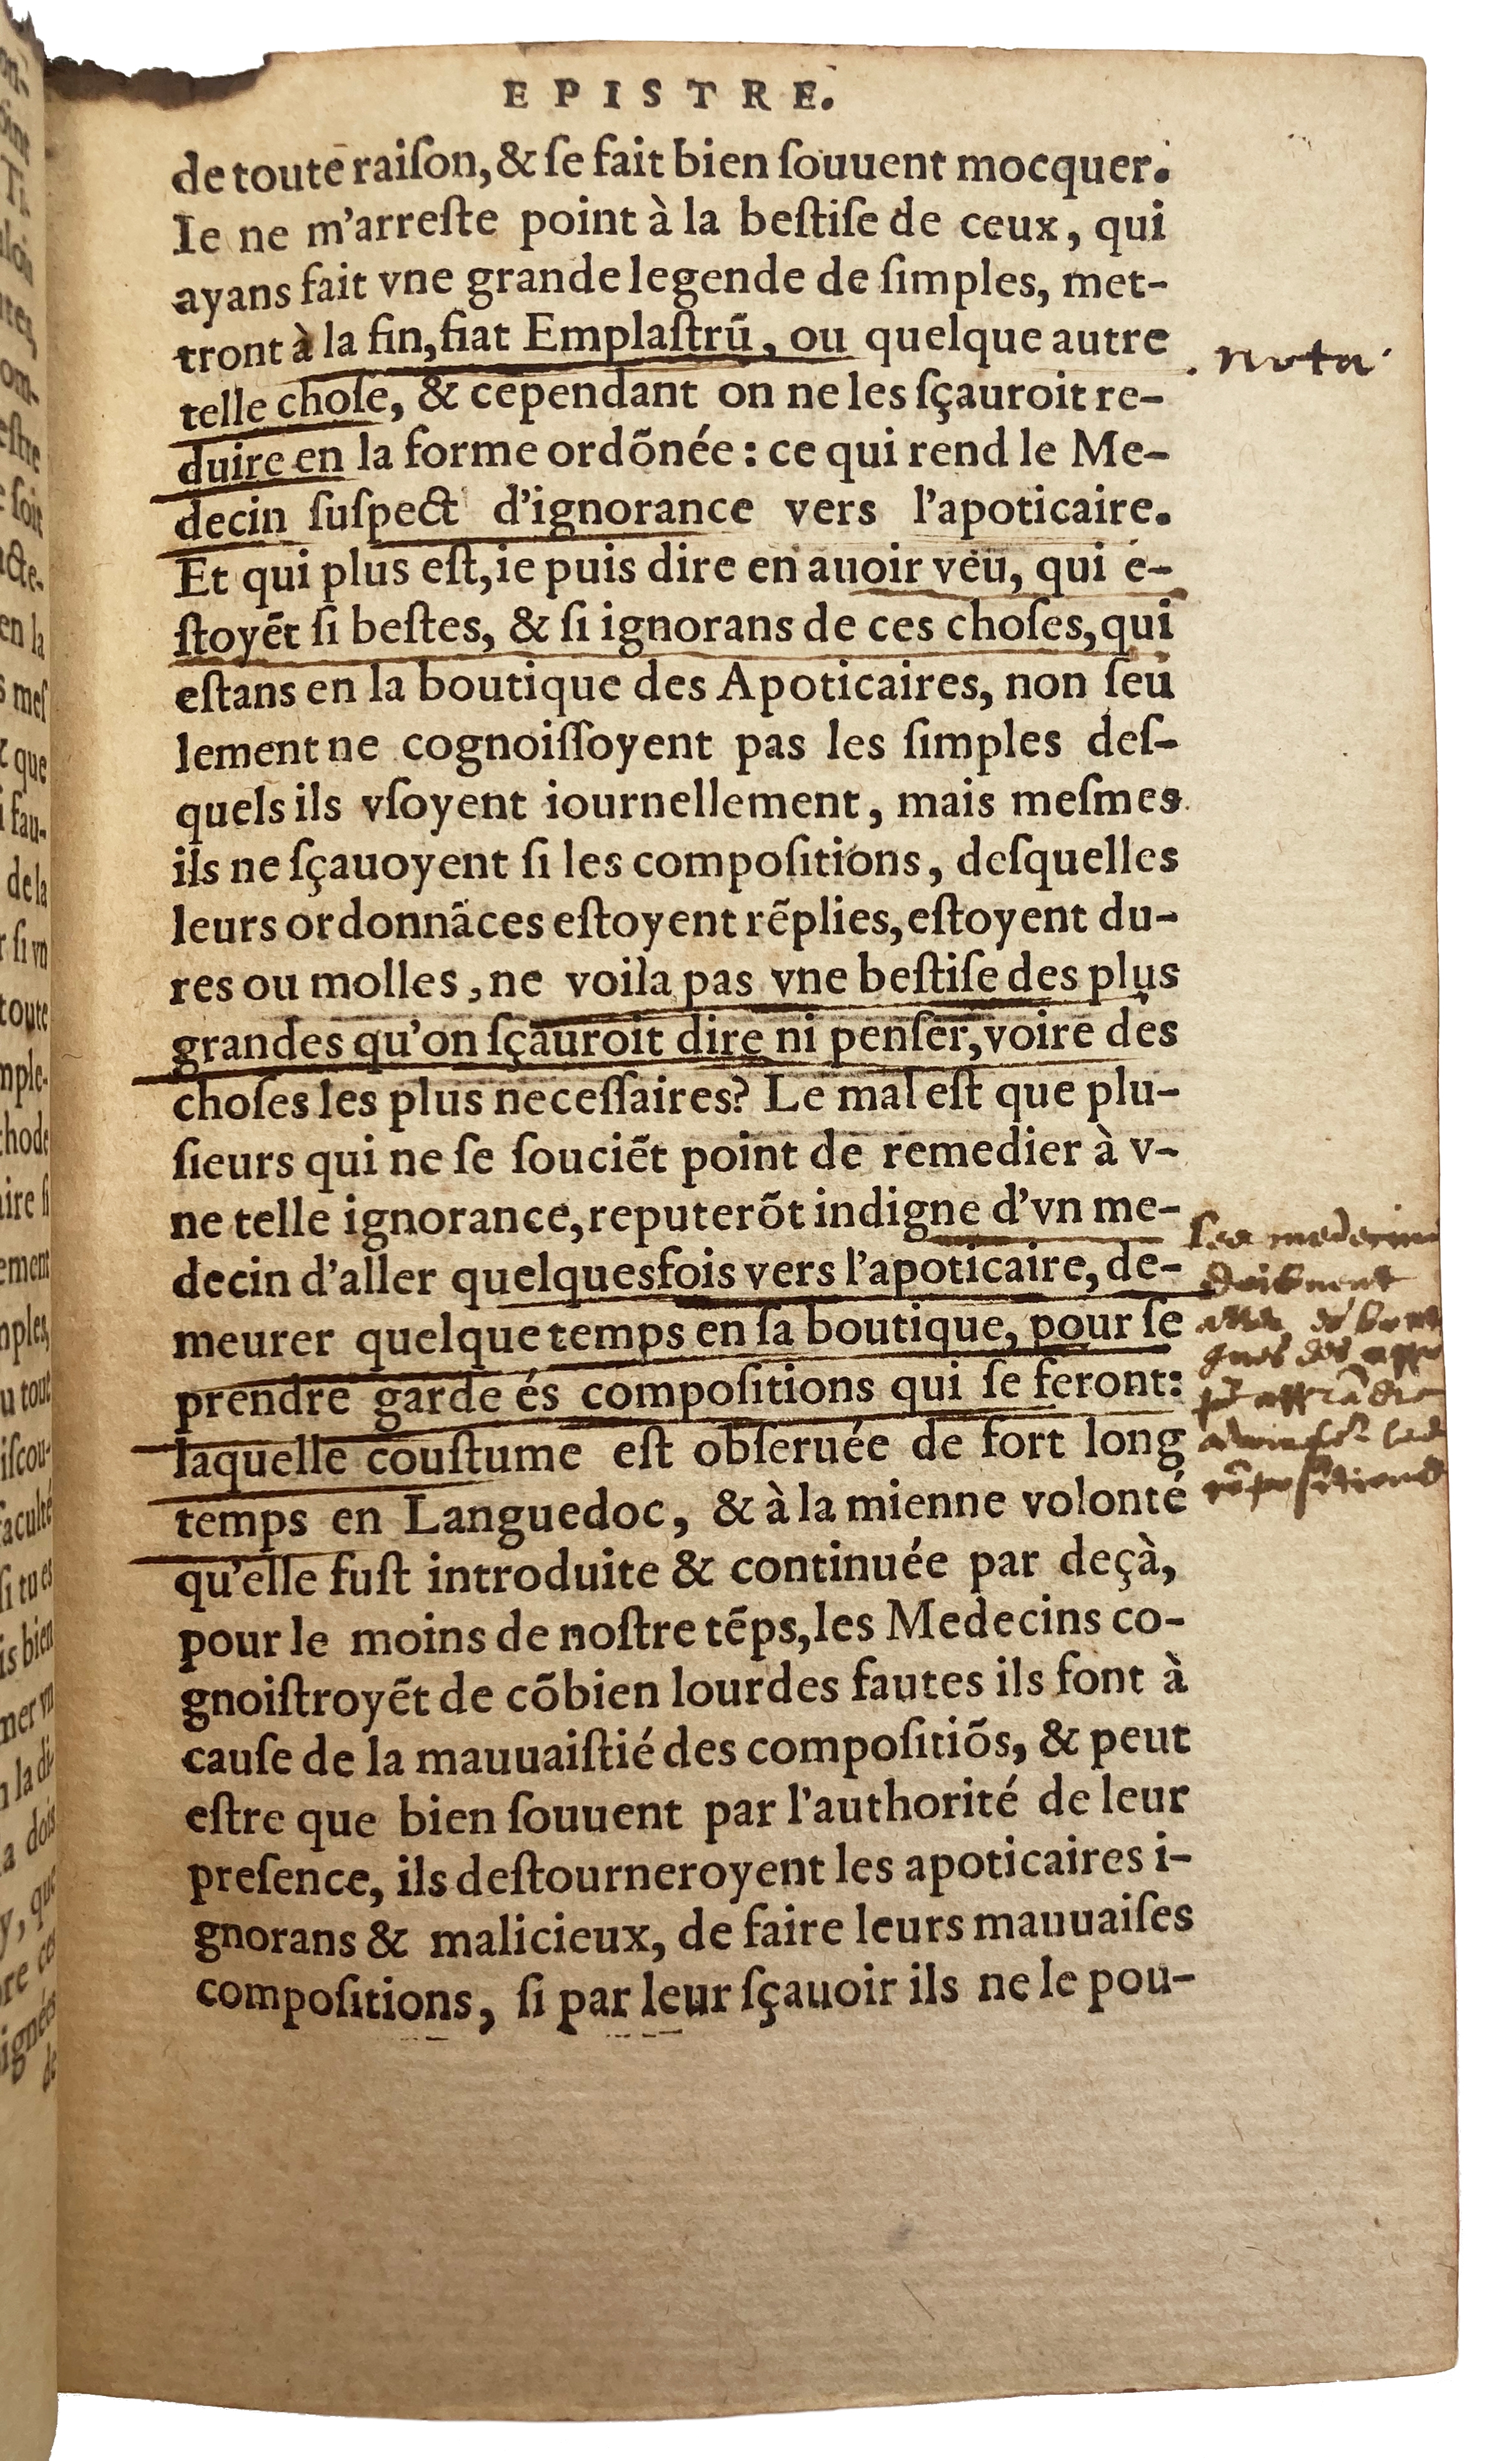 EPISTRE.
de toute raiſon, & ſe fait bien ſouuent mocquer.
Ie ne m'arreſte point à la beſtiſe de ceux, qui
ayans fait vne grande legende de ſimples, met-
tront à la fin, fiat Emplaſtrū, ou quelque autre
nota
telle choſe, & cependant on ne les ſçauroit re-
duire en la forme ordõnée: ce qui rend le Me-
decin ſuſpect d'ignorance vers l'apoticaire.
Et qui plus eſt, ie puis dire en auoir veu, qui e-
ſtoyẽt ſi beſtes, & ſi ignorans de ces choſes, qui
eſtans en la boutique des Apoticaires, non ſeu
lement ne cognoiſſoyent pas les ſimples deſ-
quels ils vſoyent iournellement, mais meſmes
ils ne ſçauoyent ſi les compoſitions, deſquelles
leurs ordonnãces eſtoyent rẽplies, eſtoyent du-
res ou molles, ne voila pas vne beſtiſe des plus
grandes qu'on ſçauroit dire ni penſer, voire des
choſes les plus neceſſaires? Le mal eſt que plu-
ſieurs qui ne ſe ſouciẽt point de remedier à v-
ne telle ignorance, reputerõt indigne d'vn me-
decin d'aller quelquesfois vers l'apoticaire, de-
meurer quelque temps en ſa boutique, pour ſe
prendre garde és compoſitions qui ſe feront:
laquelle couſtume eſt obſeruée de fort long
temps en Languedoc, & à la mienne volonté
qu'elle fuſt introduite & continuée par deçà,
pour le moins de noſtre tẽps, les Medecins co-
gnoiſtroyẽt de cõbien lourdes fautes ils font à
cauſe de la mauuaiſtié des compoſitiõs, & peut
eſtre que bien ſouuent par l'authorité de leur
preſence, ils deſtourneroyent les apoticaires i-
gnorans & malicieux, de faire leurs mauuaiſes
compoſitions, ſi par leur ſçauoir ils ne le pou-